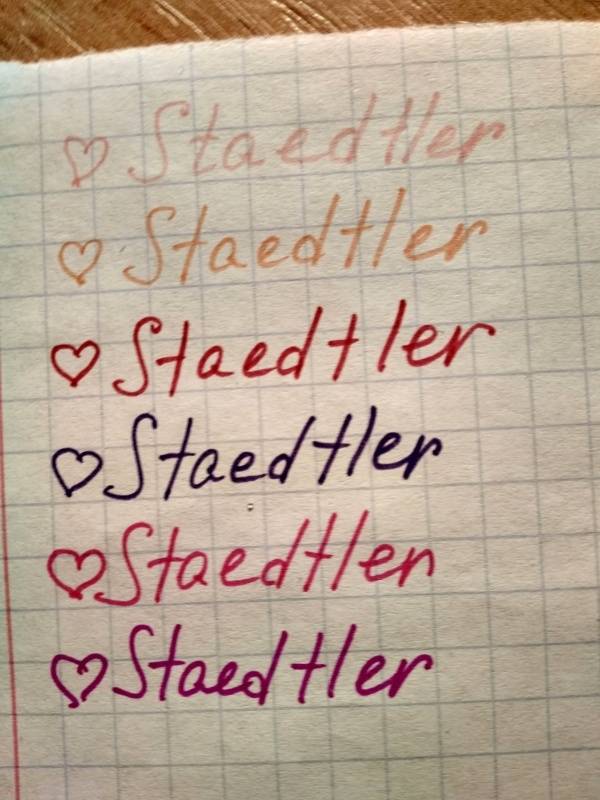 ♡ Staedtler
♡ Staedtler
♡ Staedtler
♡ Staedtler
♡ Staedtler
♡ Staedtler